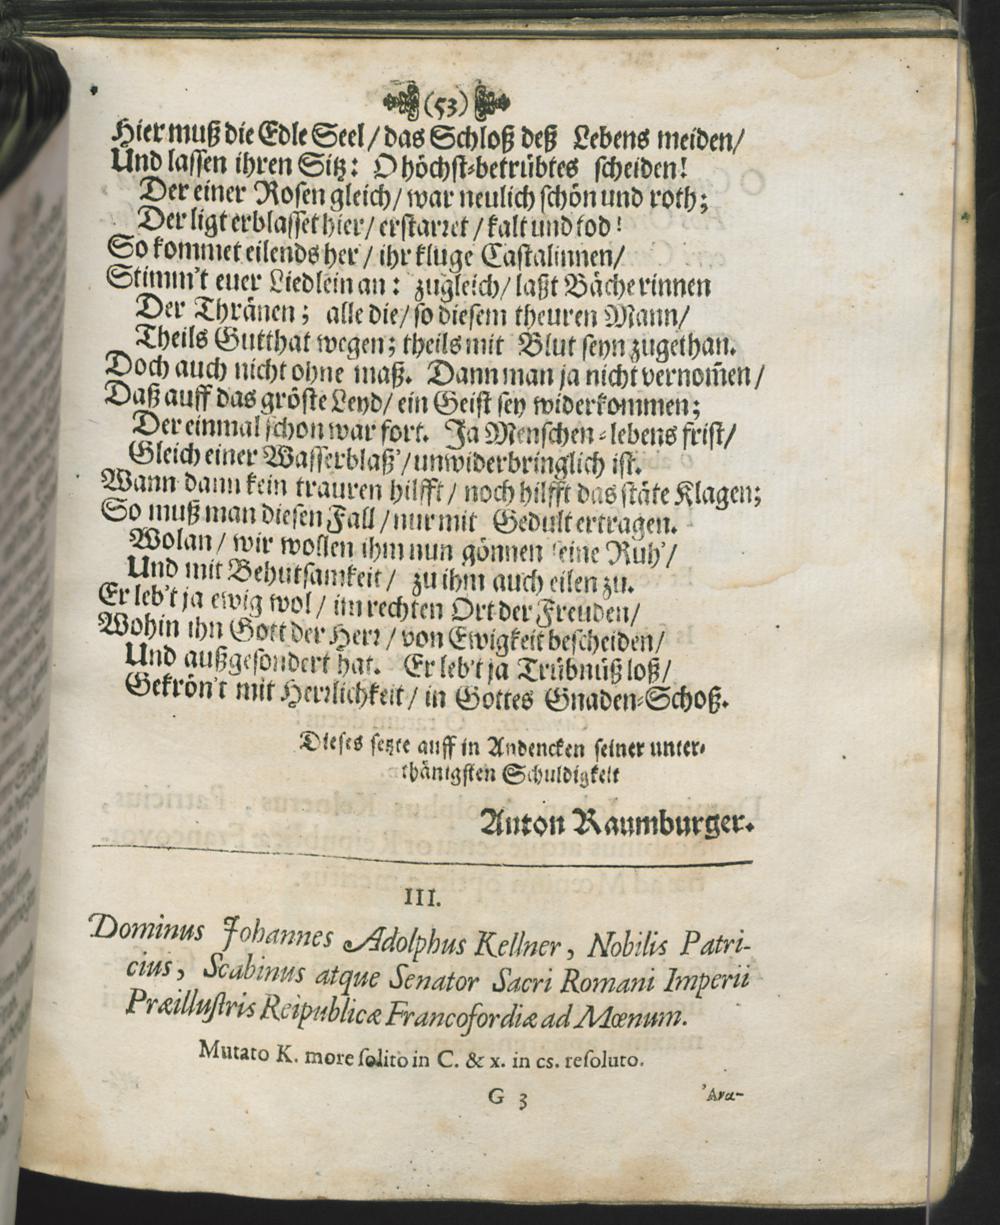 (53)
Hier muß die Edle Seel / das Schloß deß Lebens meiden /
Und lassen ihren Sitz: O höchst-betrübtes scheiden!
Der einer Rosen gleich / war neulich schön und roth;
Der ligt erblasset hier / erstarret / kalt und tod!
So kommet eilends her / ihr kluge Castalinnen /
Stimm't euer Liedlein an: zugleich / laßt Bäche rinnen
Der Thränen; alle die / so diesem theuren Mann /
Theils Gutthat wegen; theils mit Blut seyn zugethan.
Doch auch nicht ohne maß. Dann man ja nicht vernom̃en /
Daß auff das gröste Leyd / ein Geist sey widerkommen;
Der einmal schon war fort. Ja Menschen-lebens frist /
Gleich einer Wasserblaß' / unwiderbringlich ist.
Wann dann kein trauren hilfft / noch hilfft das stäte Klagen;
So muß man diesen Fall / nur mit Gedult ertragen.
Wolan / wir wollen ihm nun gönnen seine Ruh' /
Und mit Behutsamkeit / zu ihm auch eilen zu.
Er leb't ja ewig wol / im rechten Ort der Freuden /
Wohin ihn Gott der Herr / von Ewigkeit bescheiden /
Und außgesondert hat. Er leb't ja Trübnüß loß /
Gekrön't mit Herrlichkeit / in Gottes Gnaden-Schoß.
Dieses setzte auff in Andencken seiner unter-
thänigsten Schuldigkeit
Anton Raumburger.
III.
Dominus Johannes Adolphus Kellner, Nobilis Patri-
cius, Scabinus atque Senator Sacri Romani Imperii
Præillustris Reipublicæ Francofordiæ ad Mœnum.
Mutato K. more solito in C. & x. in cs. resoluto.
G 3
'Ανα-